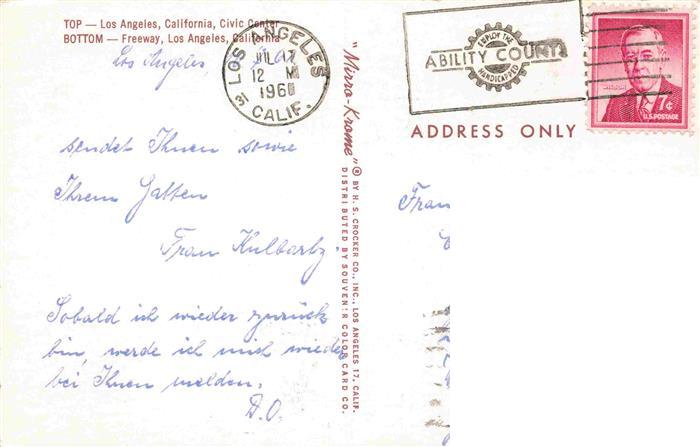 TOP — Los Angeles, California, Civic Center
BOTTOM — Freeway, Los Angeles, California
Los Angeles,
LOS ANGELES
CALIF.
12 M
196
EMPLOY THE
ABILITY COUNTS
HANDICAPPED
7¢
U.S. POSTAGE
ADDRESS ONLY
"Mirro-Krome" ® BY H. S. CROCKER CO., INC., LOS ANGELES 17, CALIF.
DISTRIBUTED BY SOUVENIR COLOR CARD CO.
sendet Ihnen sowie
Ihrem Gatten
Frau
Sobald ich wieder zurück
bin, werde ich mich wieder
bei Ihnen melden.
D.O.
Frau